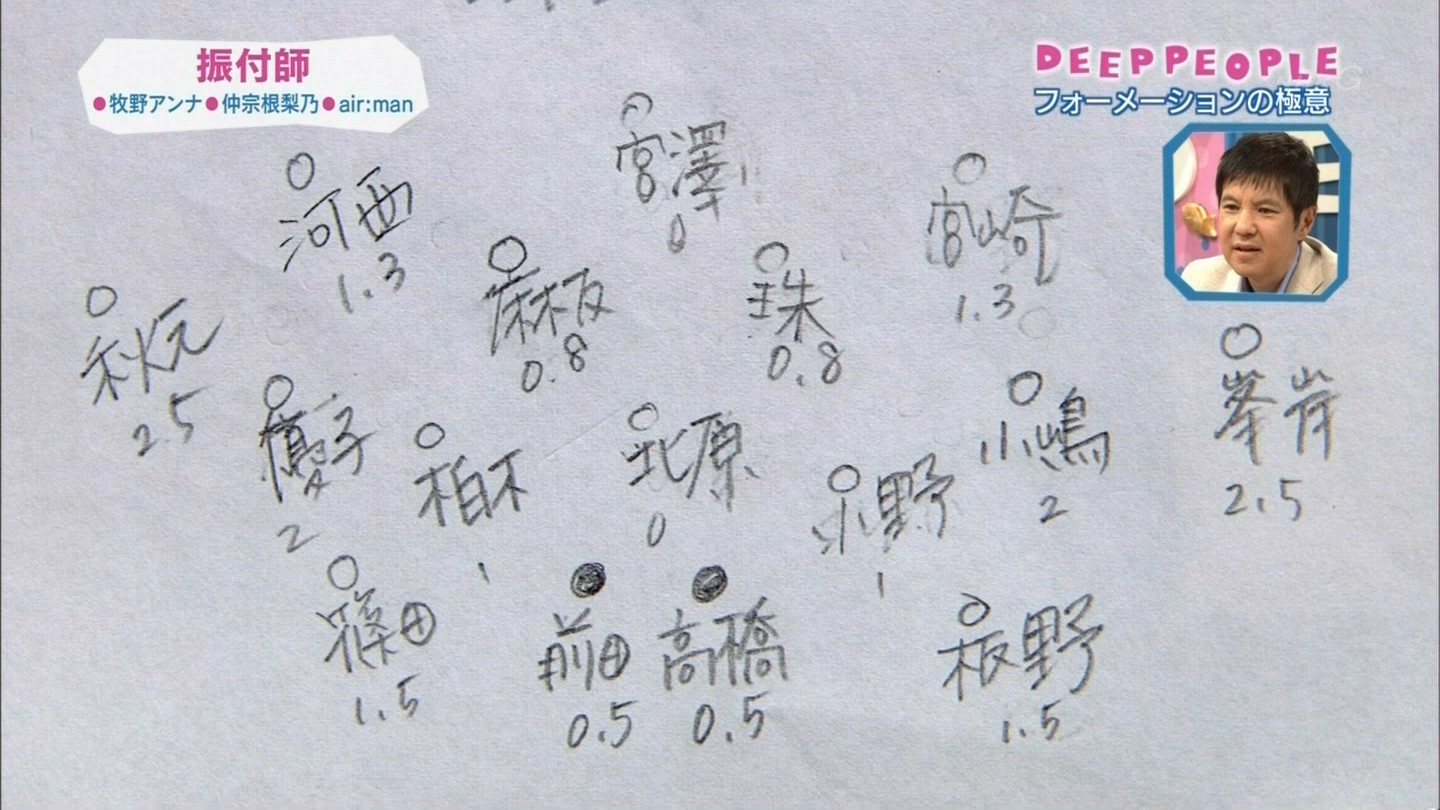 振付師
●牧野アンナ●仲宗根梨乃●air:man
DEEP PEOPLE
フォーメーションの極意
宮澤
0
河西
1.3
宮崎
1.3
麻友
0.8
珠
0.8
秋元
2.5
峯岸
2.5
優子
2
柏木
1
北原
0
小野
1
小嶋
2
篠田
1.5
前田
0.5
高橋
0.5
板野
1.5